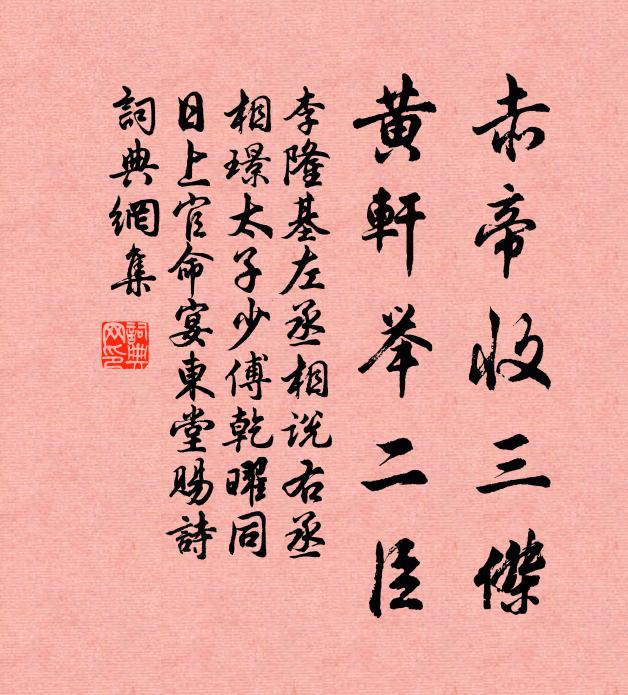 赤帝收三傑
黃軒举二臣
李隆基左丞相说右丞
相璟太子少傅乾曜同
日上官命宴東堂賜詩
詞典網集
詞典網印